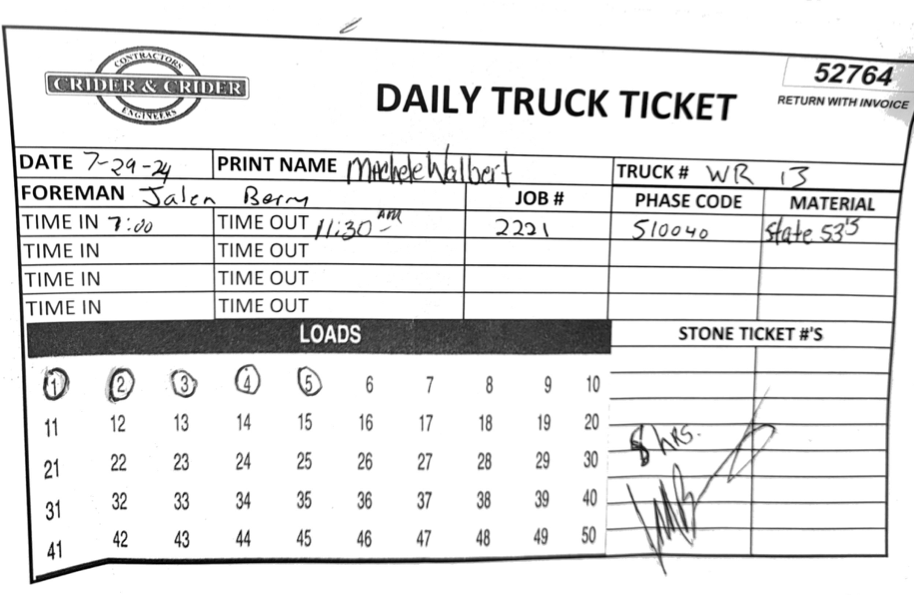 CONTRACTORS
CRIDER & CRIDER
ENGINEERS
DAILY TRUCK TICKET
52764
RETURN WITH INVOICE
DATE 7-29-24 PRINT NAME Michele Walbert TRUCK # WR 13
FOREMAN Jalen Berry JOB # PHASE CODE MATERIAL
TIME IN 7:00 TIME OUT 11:30 AM 2221 510040 State 53's
TIME IN TIME OUT
TIME IN TIME OUT
TIME IN TIME OUT
LOADS STONE TICKET #'S
1 2 3 4 5 6 7 8 9 10
11 12 13 14 15 16 17 18 19 20
8 hrs.
21 22 23 24 25 26 27 28 29 30
31 32 33 34 35 36 37 38 39 40
41 42 43 44 45 46 47 48 49 50